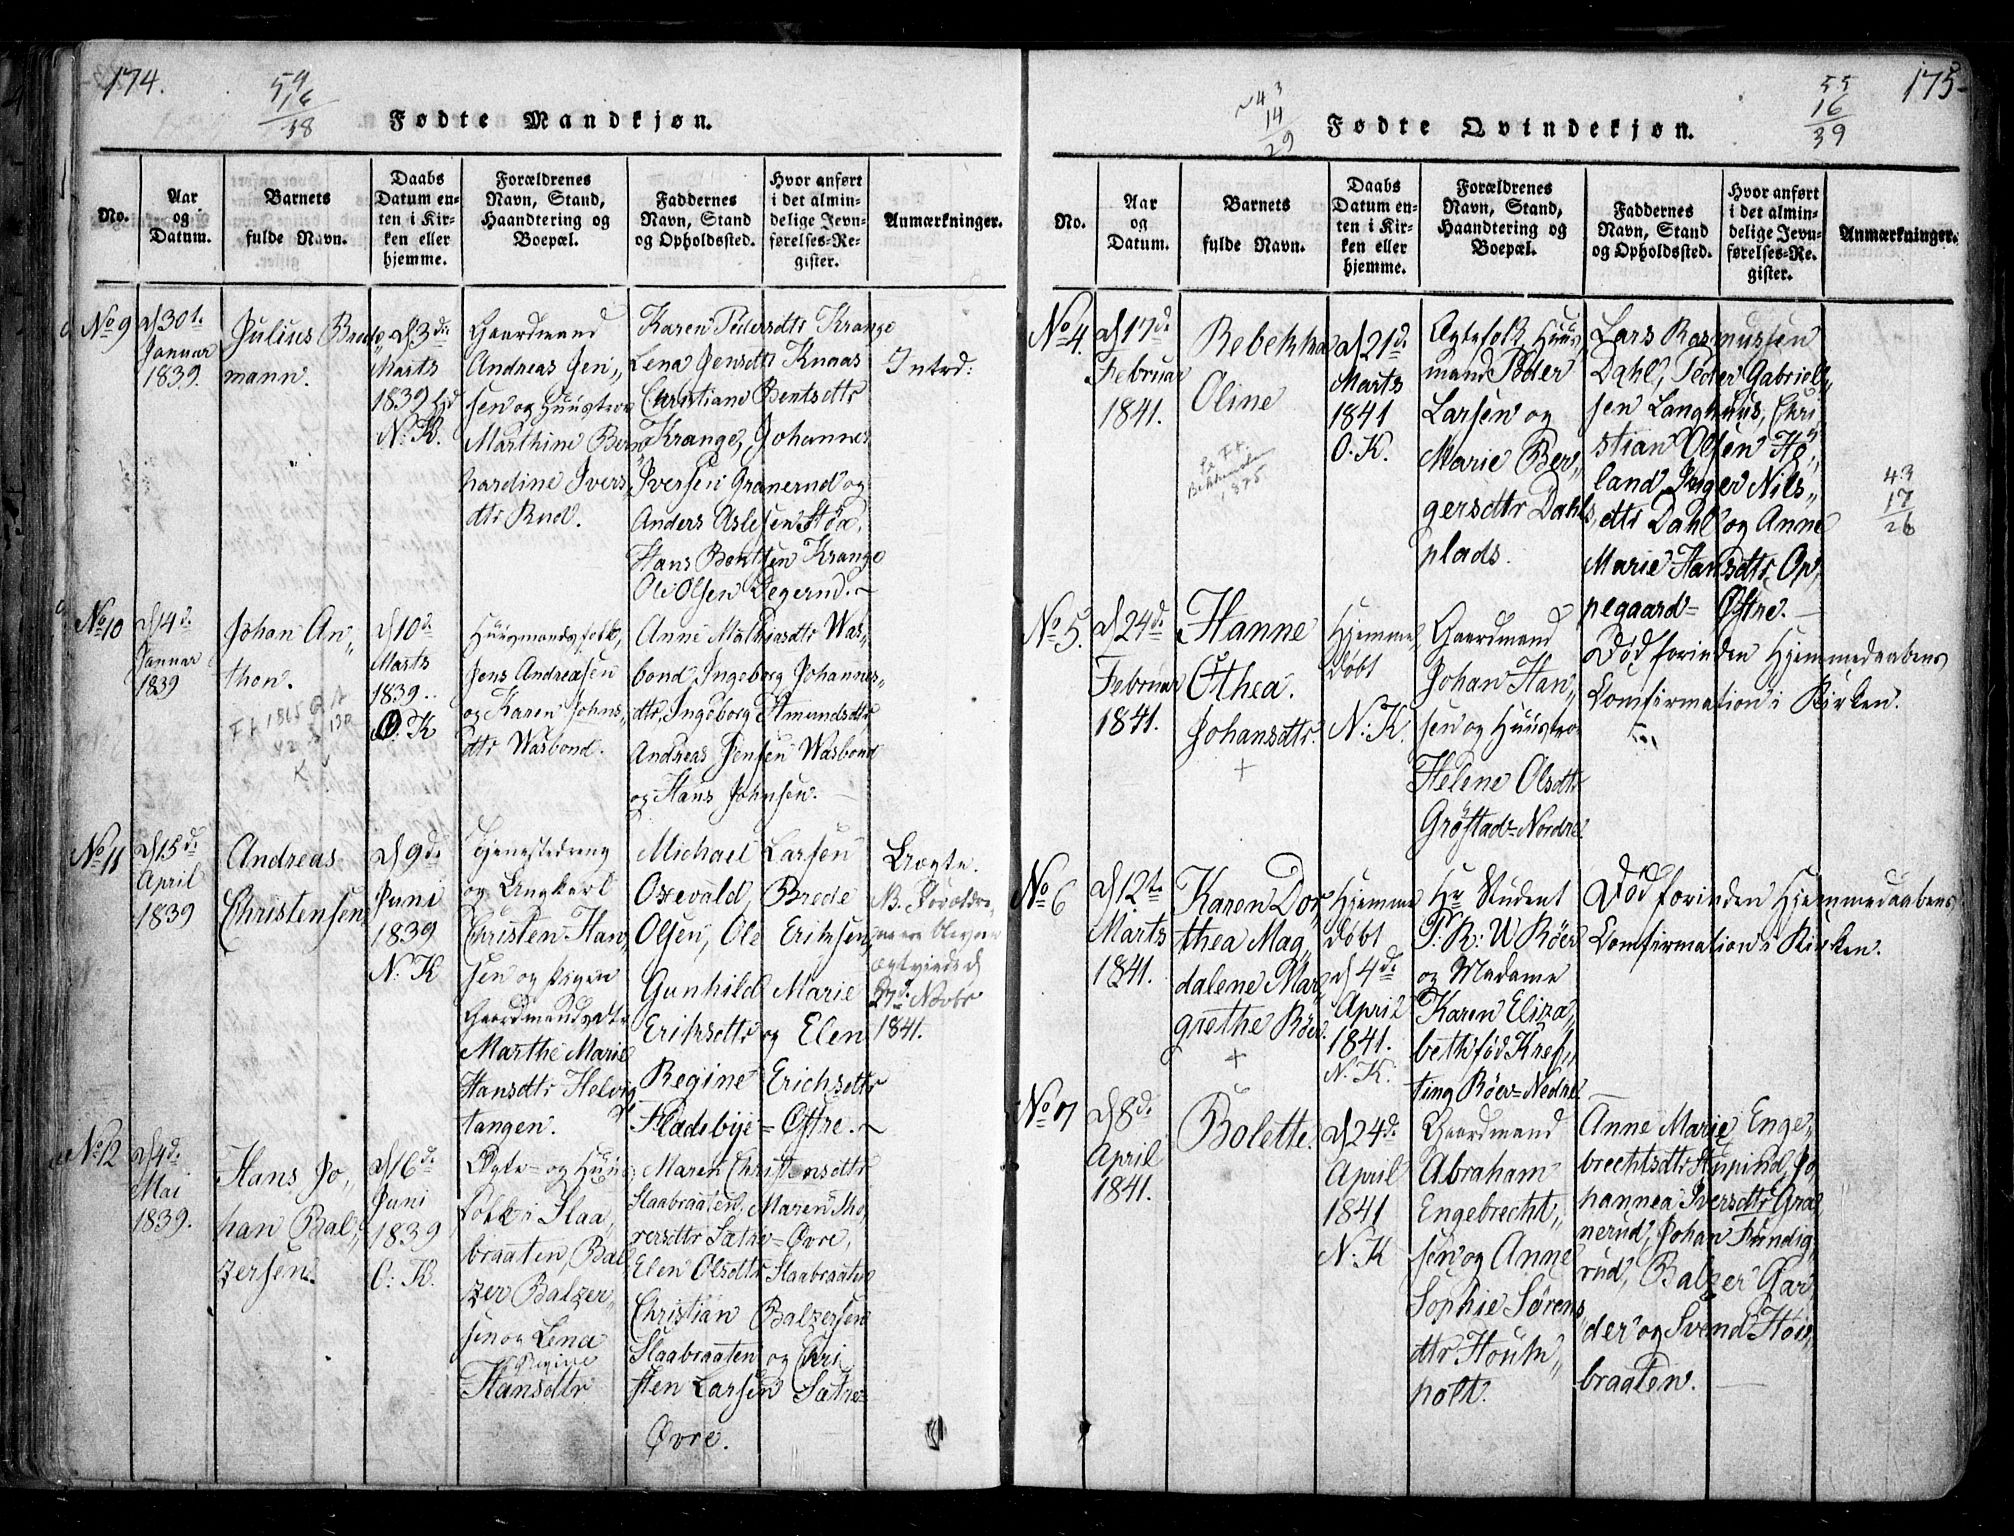 174.
54
16
38
Fødte Mandkjøn.
No.
Aar
og
Datum.
Barnets
fulde Navn.
Daabs
Datum en-
ten i Kir-
ken eller
hjemme.
Forældrenes
Navn, Stand,
Haandtering og
Boepæl.
Faddernes
Navn, Stand
og Opholdssted.
Hvor anført
i det almin-
delige Jevn-
førelses-Re-
gister.
Anmærkninger.
No 9
d 30te
Januar
1839.
Julius Brede
mann.
d 3de
Marts
1839
N. K.
Gaardmand
Andreas Jen„
sen og Huustroe
Marthine Bern„
hardine Ivers
dtr Rud.
Karen Pedersdtr Krange
Lena Jensdtr Knaas
Christiane Bentsdtr
Krange, Johannes
Iversen Granerud og
Anders Aslesen
Hans Bentsen Krange
Ole Olsen Degerud.
Intrd:
No 10
d 14de
Januar
1839
Johan An„
thon.
Ft 1865
d 10de
Marts
1839.
O. K
Huusmandsfolk,
Jens Andreasen
og Karen Johns„
dtr Wasbond.
Anne Mathiasdtr Was„
bond Ingeborg Johannes„
dtr, Ingeborg Amundsdtr
Andreas Jensen Wasbond
og Hans Johnsen.
No 11
d 15de
April
1839
Andreas
Christensen
d 9de
Juni
1839
N: K
Tjenestedreng
og Ungkarl
Christen Han„
sen og Pigen
Gaardmandsdtr
Marthe Marie
Hansdtr Helvig
tangen.
Michael Larsen
Osevald, Brede
Olsen, Ole Eriksen,
Gunhild Marie
Eriksdtr og Elen
Regine Erichsdtr
Fladebye= Østre.
Uægte.
NB. Foreldre„
ne ere bleven
ægtviede d
27d Novbr
1841.
No 12
d 4de
Mai
1839.
Hans Jo„
han Bal„
zersen.
d 16de
Juni
1839
O: K.
Ægte= og Huus
folk i Slaa„
braaten, Bal„
zer Balzer„
sen og Lena
Regine
Hansdtr
Maren Christensdtr
Slaabraaten, Maren Tho„
resdtr Sætre= Øvre,
Elen Olsdtr Slaabraaten
Christian Balzersen
Slaabraaten og Chri
sten Larsen Sætre=
Øvre.
175
43
14
29
Fødte Qvindekjøn.
55
16
39
No.
Aar
og
Datum.
Barnets
fulde Navn.
Daabs
Datum en-
ten i Kir-
ken eller
hjemme.
Forældrenes
Navn, Stand,
Haandtering og
Boepæl.
Faddernes
Navn, Stand
og Opholdssted.
Hvor anført
i det almin-
delige Jevn-
førelses-Re-
gister.
Anmærkninger.
No 4.
d 17de
Februar
1841.
Rebekka
Oline
1875
d 21de
Marts
1841
O. K.
Ægtefolk Huus
mand Peder
Larsen og
Marie Ber„
gersdtr Dahls
plads.
Lars Rasmussen
Dahl, Peder Gabriel„
sen Langhuus, Chri
stian Olsen Hø„
land Inger Nils„
dtr Dahl og Anne
Marie Hansdtr Op„
pegaard= Østre.
43
17
26
No 5.
d 24de
Februar
1841.
Hanne
Othea.
Johansdtr.
+
Hjemme
døbt
N: K.
Gaardmand
Johan Han„
sen og Huustroe
Helene Olsdtr
Grøstad= Nordre
Død forinden Hjemmedaabens
Comfirmation i Kirken.
No 6
d 12te
Marts
1841.
Karen Dor„
thea Mag„
dalene Mar„
grethe Röer
+
Hjemme
døbt
d 4de
April
1841.
N. K.
Hr Student
P: R: W Röer
og Madame
Karen Eliza„
beth fød Kref„
ting Röer= Nedre
Død forinden Hjemmedaabens
Comfirmation i Kirken.
No 7
d 8de
April
1841.
Bolette.
d 24de
April
1841
N: K
Gaardmand
Abraham
Engebrecht„
sen og Anne
Sophie Sørens„
dtr Houm„
holt.
Anne Marie Enge„
brechtsdtr Huppihol, Jo
hannea Iversdtr Gra„
nerud, Johan Rundig„
rud, Balzer Gar„
der og Svend Høi„
braaten.